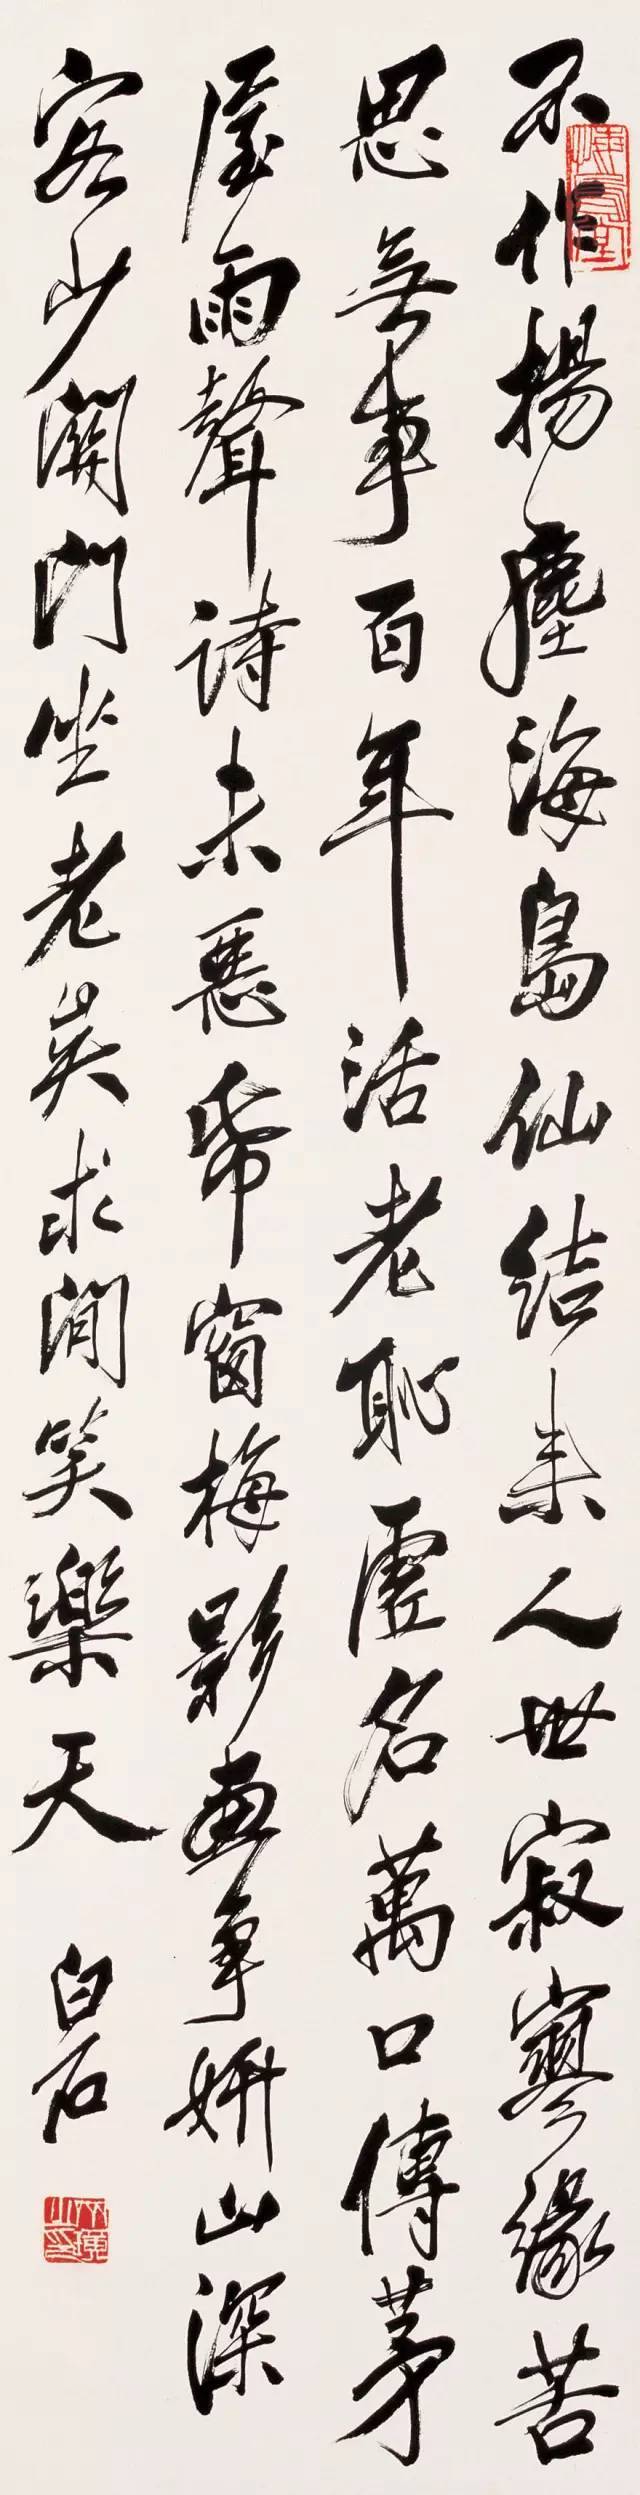 不作揚塵海島仙結來人世寂寥緣苦
思無事百年活老恥虛名萬口傳茅
屋雨聲詩未惡紙窗梅影畫事妍山深
客少關門坐老矣求閒笑樂天
白石